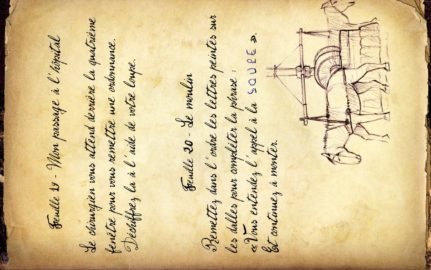 Feuille 19 - Mon passage à l'hôpital
Le chirurgien vous attend derrière la quatrième
fenêtre pour vous remettre une ordonnance.
Déchiffrez la à l'aide de votre loupe.
Feuille 20 - Le moulin
Remettez dans l'ordre les lettres peintes sur
les dalles pour compléter la phrase :
«Vous entendez l'appel à la SOULE».
Et continuez à monter.